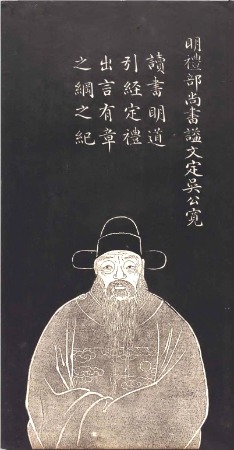 明禮部尚書謚文定吳公寬
讀書明道
引經定禮
出言有章
之綱之紀